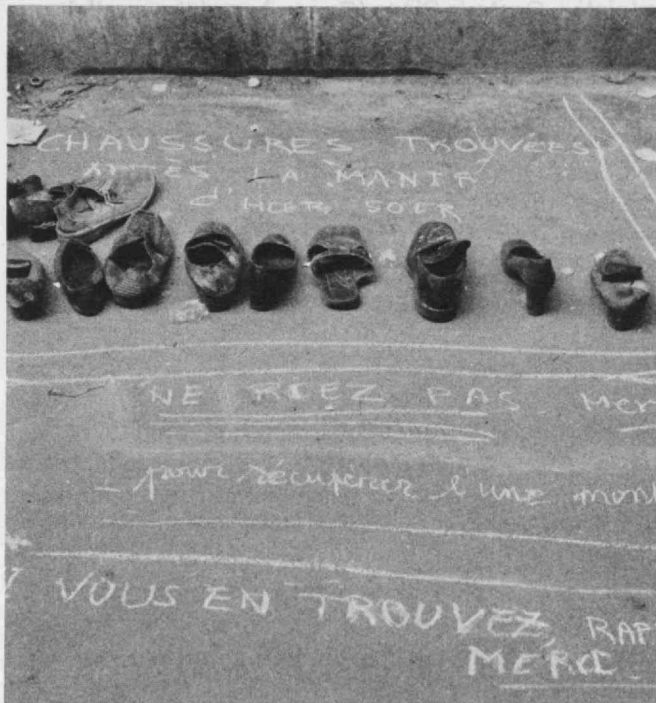 CHAUSSURES TROUVEES
APRÈS LA MANIF
d'HIER SOIR
NE RIEZ PAS. Mer
pour récupérer l'une mont
VOUS EN TROUVEZ, RAP
MERCI.